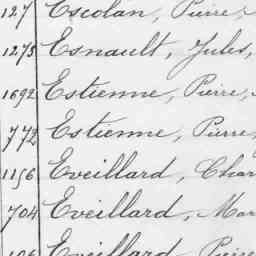 127 Escolan, Pierre,
1273 Esnault, Jules,
1692 Estienne, Pierre,
772 Estienne, Pierre,
1156 Eveillard, Char
704 Eveillard, Mar
Eveillard